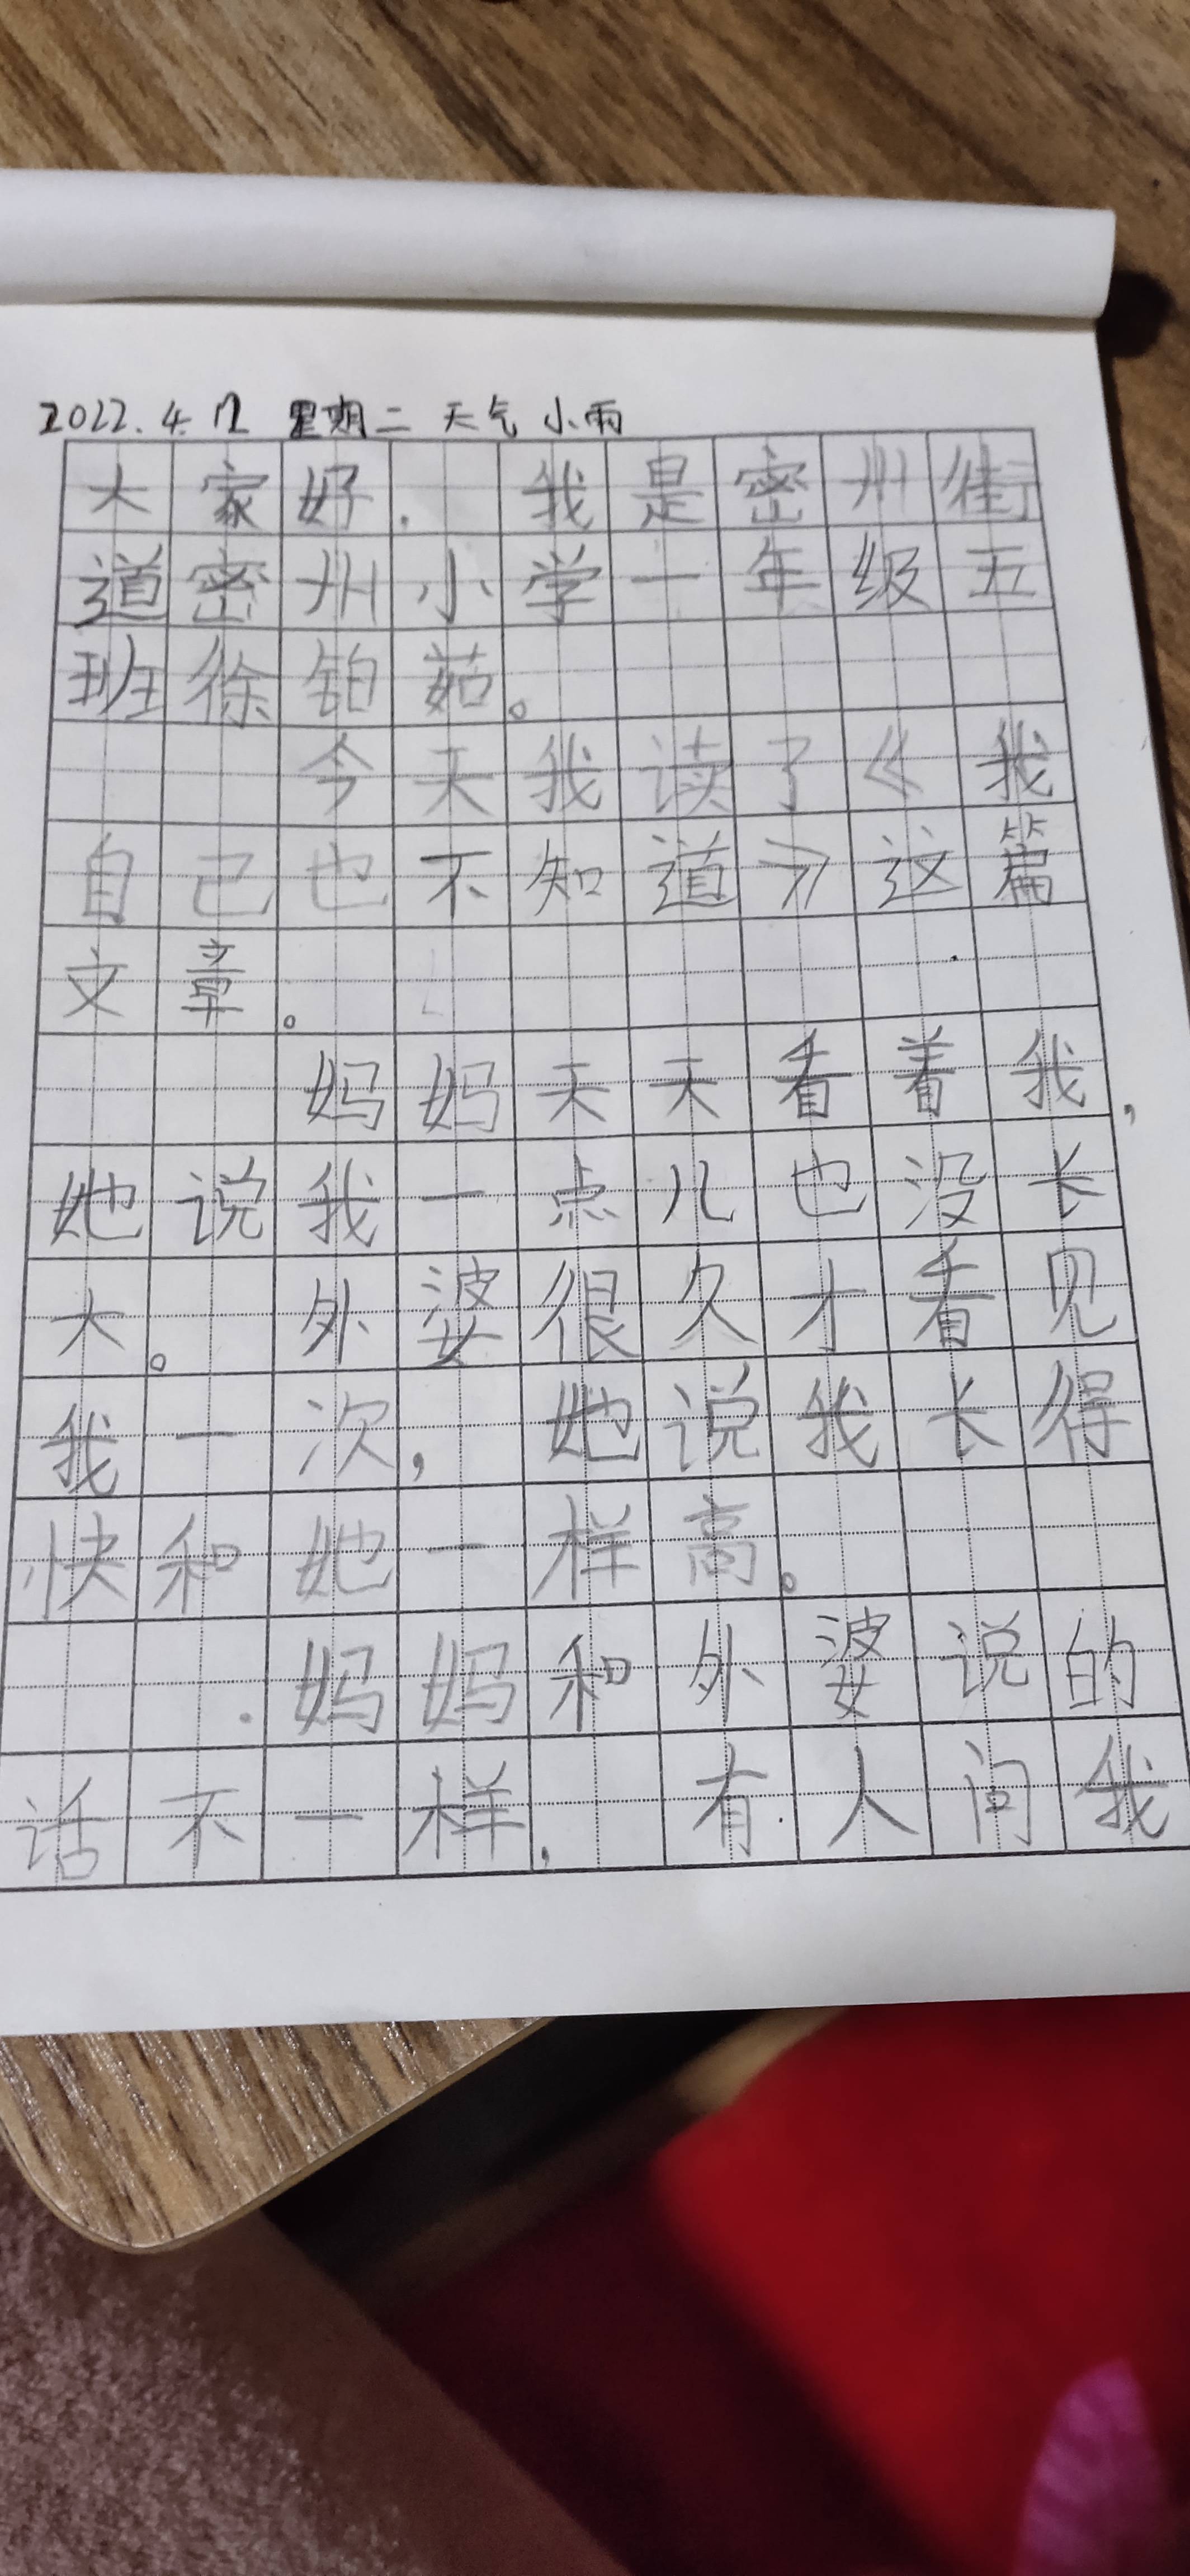 2022.4.12 星期二 天气 小雨
大家好. 我是密州街
道密州小学一年级五
班徐铂茹。
今天我读了《我
自己也不知道》这篇
文章。
妈妈天天看着我,
她说我一点儿也没长
大。外婆很久才看见
我一次, 她说我长得
快和她一样高。
妈妈和外婆说的
话不一样, 有人问我